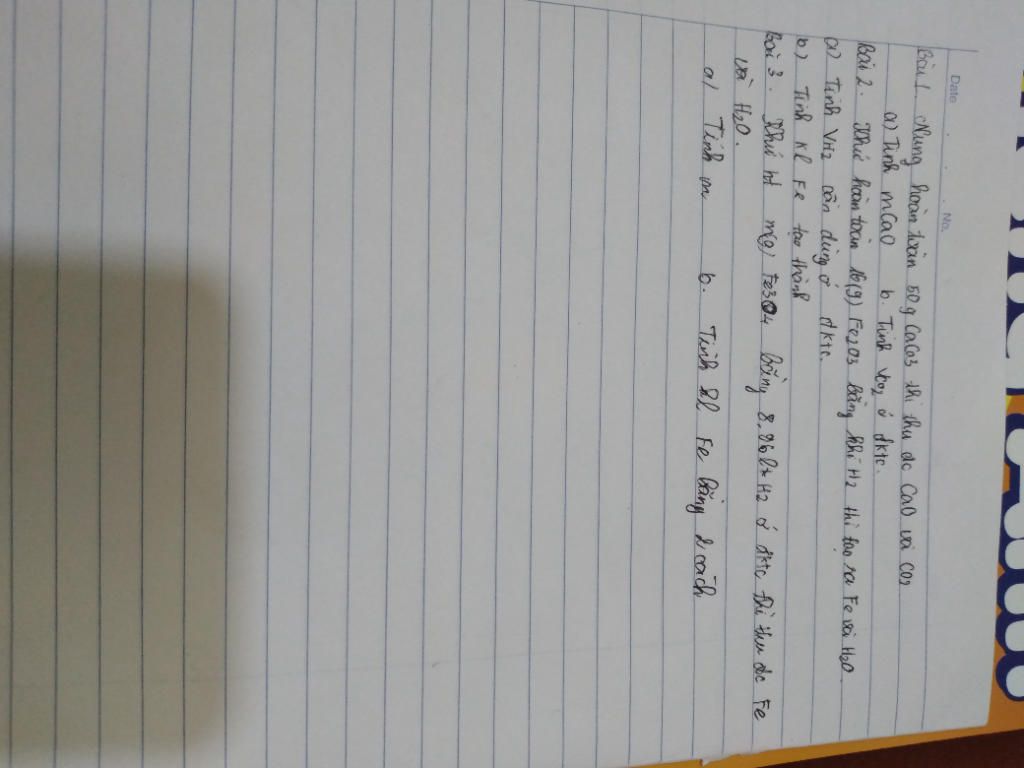 Date
No.
Bài 1. Nung hoàn toàn 50g CaCO3 thì thu đc CaO và CO2
a) Tính mCaO b. Tính VCO2 ở đktc.
Bài 2. Khử hoàn toàn 16(g) Fe2O3 bằng khí H2 thì tạo ra Fe và H2O.
a) Tính VH2 cần dùng ở đktc.
b) Tính Kl Fe tạo thành
Bài 3. Khử ht m(g) Fe3O4 bằng 8.96 lít H2 ở đktc thì thu đc Fe
và H2O.
a/ Tính m b. Tính kl Fe bằng 2 cách